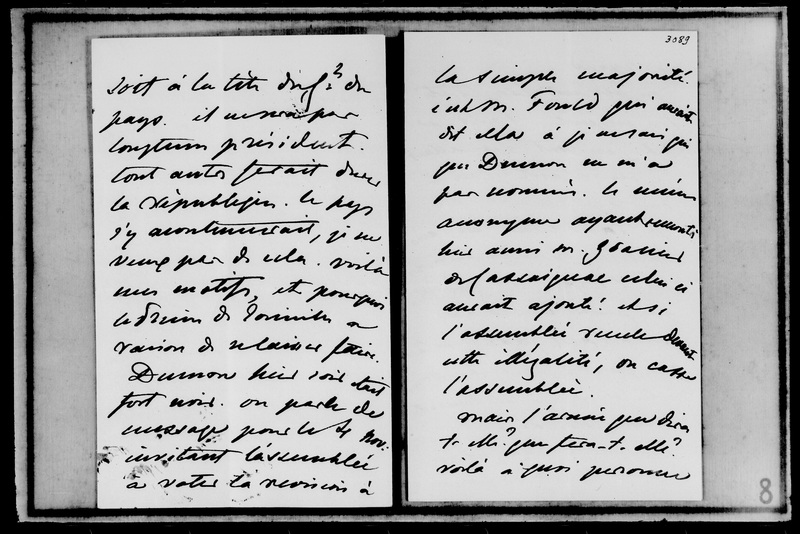 soit à la tête du g^t du
pays. il ne sera pas
longtems président.
tout autre ferait durer
la république. le pays
s'y accoutumerait, je ne
veux pas de cela. voilà
mes motifs, et pourquoi
le Prince de Joinville a
raison de se laisser faire.
Dumon hier soir était
fort noir. on parle de
message pour le 4 Nov:
invitant l'assemblée
à voter la revision à
3089
la simple majorité.
c'est M. Fould qui aurait
dit cela à je ne sais qui
que Dumon ne m'a
pas nommé. le même
anonyme ayant rencontré
hier aussi M. Granier
de Cassaignac celui ci
aurait ajouté. et si
l'assemblée recule devant
cette illégalité, on casse
l'assemblée.
mais l'armée que dira
t-elle? que fera-t-elle?
voilà à quoi personne
8